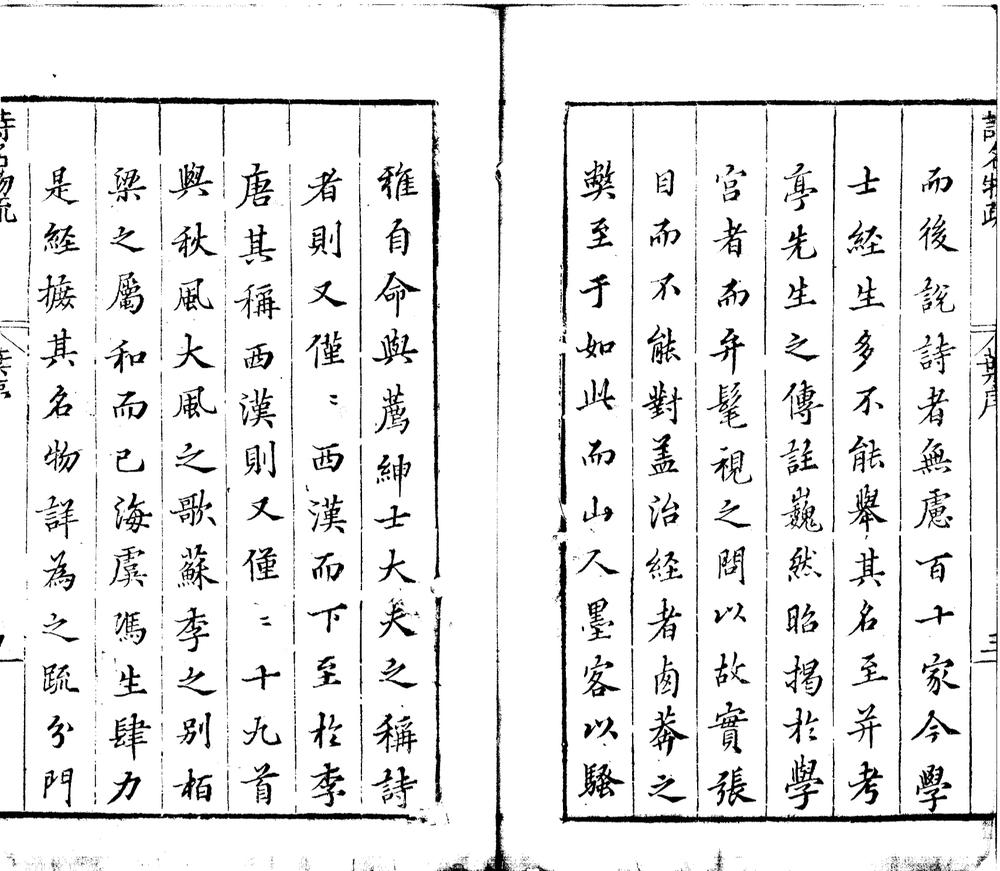 而後說詩者無慮百十家今學
士經生多不能舉其名至并考
亭先生之傳註巍然昭揭於學
宮者而弁髦視之問以故實張
目而不能對盖治經者鹵莽之
獘至于如此而山人墨客以騷
雅自命與薦紳士大夫之稱詩
者則又僅〻西漢而下至於李
唐其稱西漢則又僅〻十九首
與秋風大風之歌蘇李之别栢
梁之屬和而已海虞馮生肆力
是經摭其名物詳為之疏分門